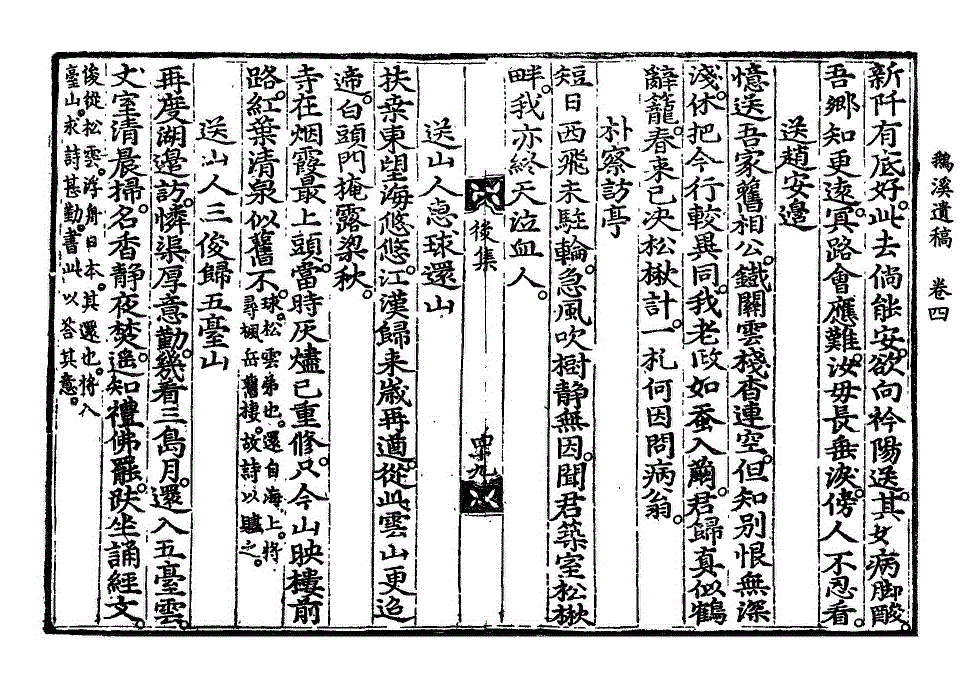 鵝溪遺稿 卷四
新阡有底好。此去倘能安。欲向衿陽送。其女病脚酸。
吾鄕知更遠。冥路會應難。汝毋長垂淚。傍人不忍看。
送趙安邊
憶送吾家舊相公。鐵關雲棧杳連空。但知別恨無深
淺。休把今行較異同。我老政如蚕入繭。君歸真似鶴
辭籠。春來已決松楸計。一札何因問病翁。
朴察訪亭
短日西飛未駐輪。急風吹樹靜無因。聞君築室松楸
畔。我亦終天泣血人。
後集 四十九
送山人惠球還山
扶桒東望海悠悠。江漢歸来歲再遒。從此雲山更迢
遰。白頭門掩露梁秋。
寺在烟霞最上頭。當時灰燼已重修。只今山映樓前
路。紅葉清泉似舊不。球。松雲弟也。還自海上。將
尋楓岳舊棲。故詩以贐之。
送山人三俊歸五臺山
再度湖邊訪。憐渠厚意勤。幾看三島月。還入五臺雲。
丈室清晨掃。名香靜夜焚。遙知禮佛罷。趺坐誦經文。
俊從松雲。浮舟日本。其還也。將入
臺山。求詩甚勤。書此以答其意。